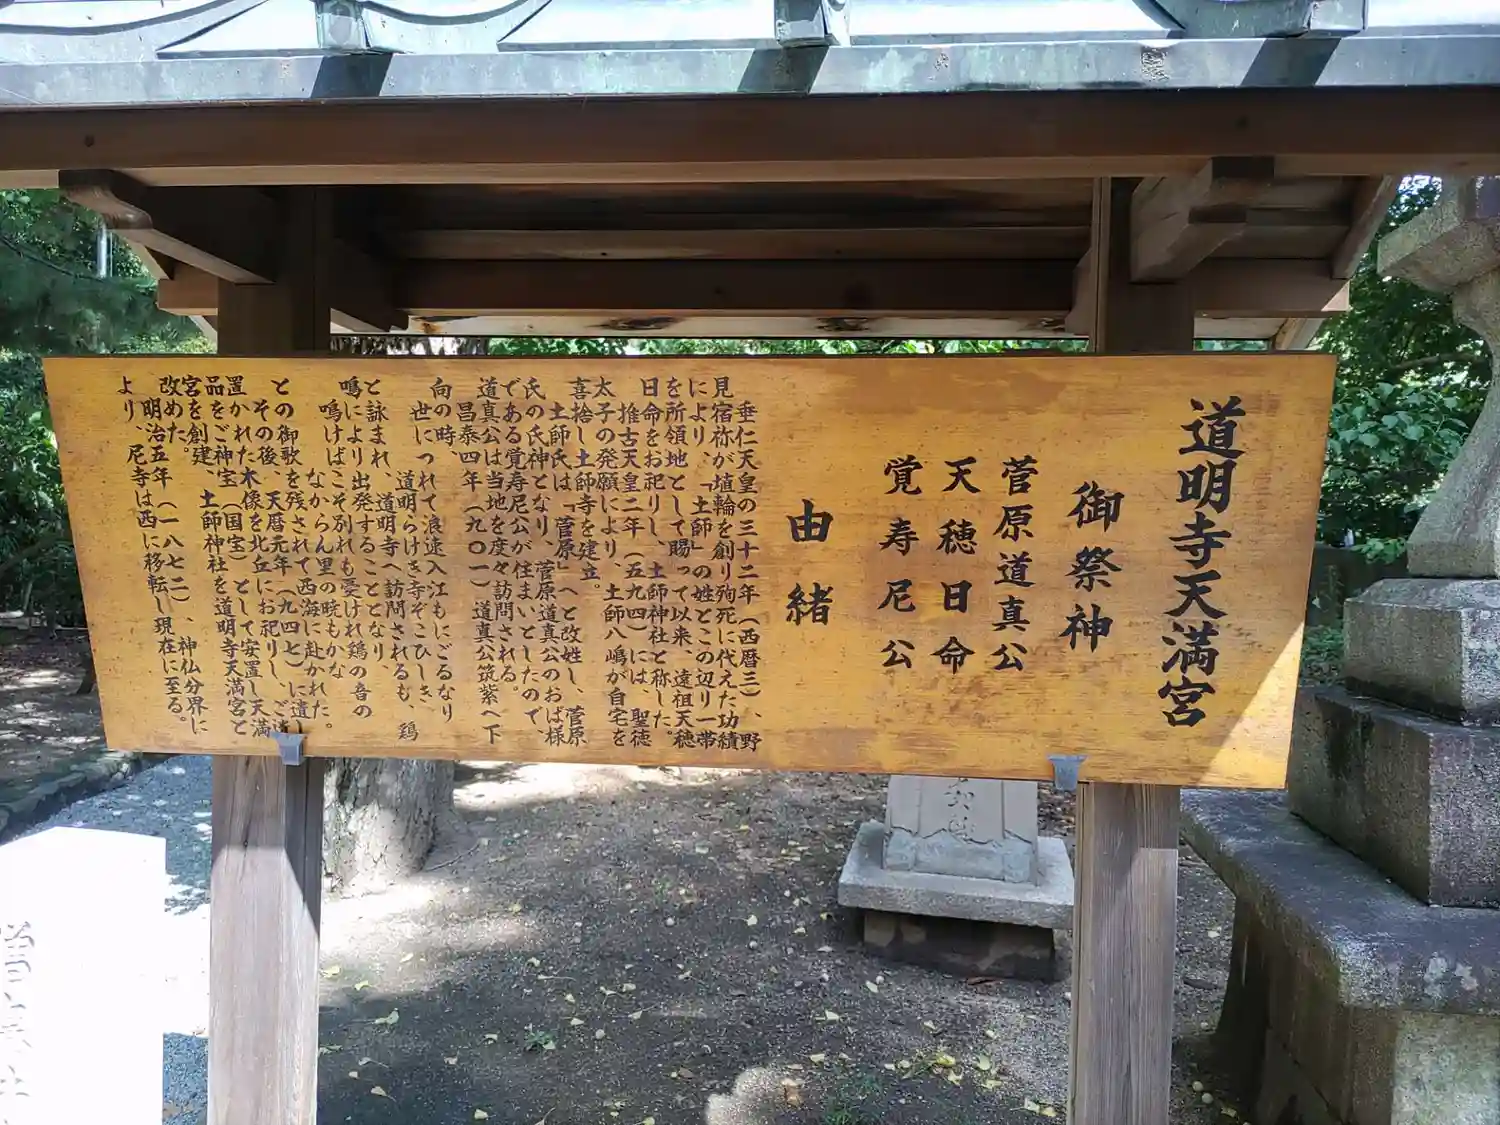 道明寺天満宮
御祭神
菅原道真公
天穂日命
覚寿尼公
由緒
垂仁天皇の三十二年(西暦三)、野
見宿祢が埴輪を創り殉死に代えた功績
により、「土師」の姓とこの辺り一帯
を所領地として賜って以来、遠祖天穂
日命をお祀りし、土師神社と称した。
推古天皇二年(五九四)には、聖徳
太子の発願により、土師八嶋が自宅を
喜捨し土師寺を建立。
土師氏は「菅原」へと改姓し、菅原
氏の氏神となり、菅原道真公のおば様
である覚寿尼公が住まいとしたので、
道真公は当地を度々訪問される。
昌泰四年(九〇一)道真公筑紫へ下
向の時、
世につれて浪速入江もにごるなり
道明らけき寺ぞこひしき
と詠まれ、道明寺へ訪問されるも、鶏
鳴により出発することとなり、
鳴けばこそ別れも憂けれ鶏の音の
なからん里の暁もかな
との御歌を残されて西海に赴かれた。
その後、天暦元年(九四七)に遺し
置かれた木像を北丘にお祀りし、ご遺
品をご神宝(国宝)として安置し天満
宮を創建、土師神社を道明寺天満宮と
改めた。
明治五年(一八七二)、神仏分界に
より、尼寺は西に移転し現在に至る。